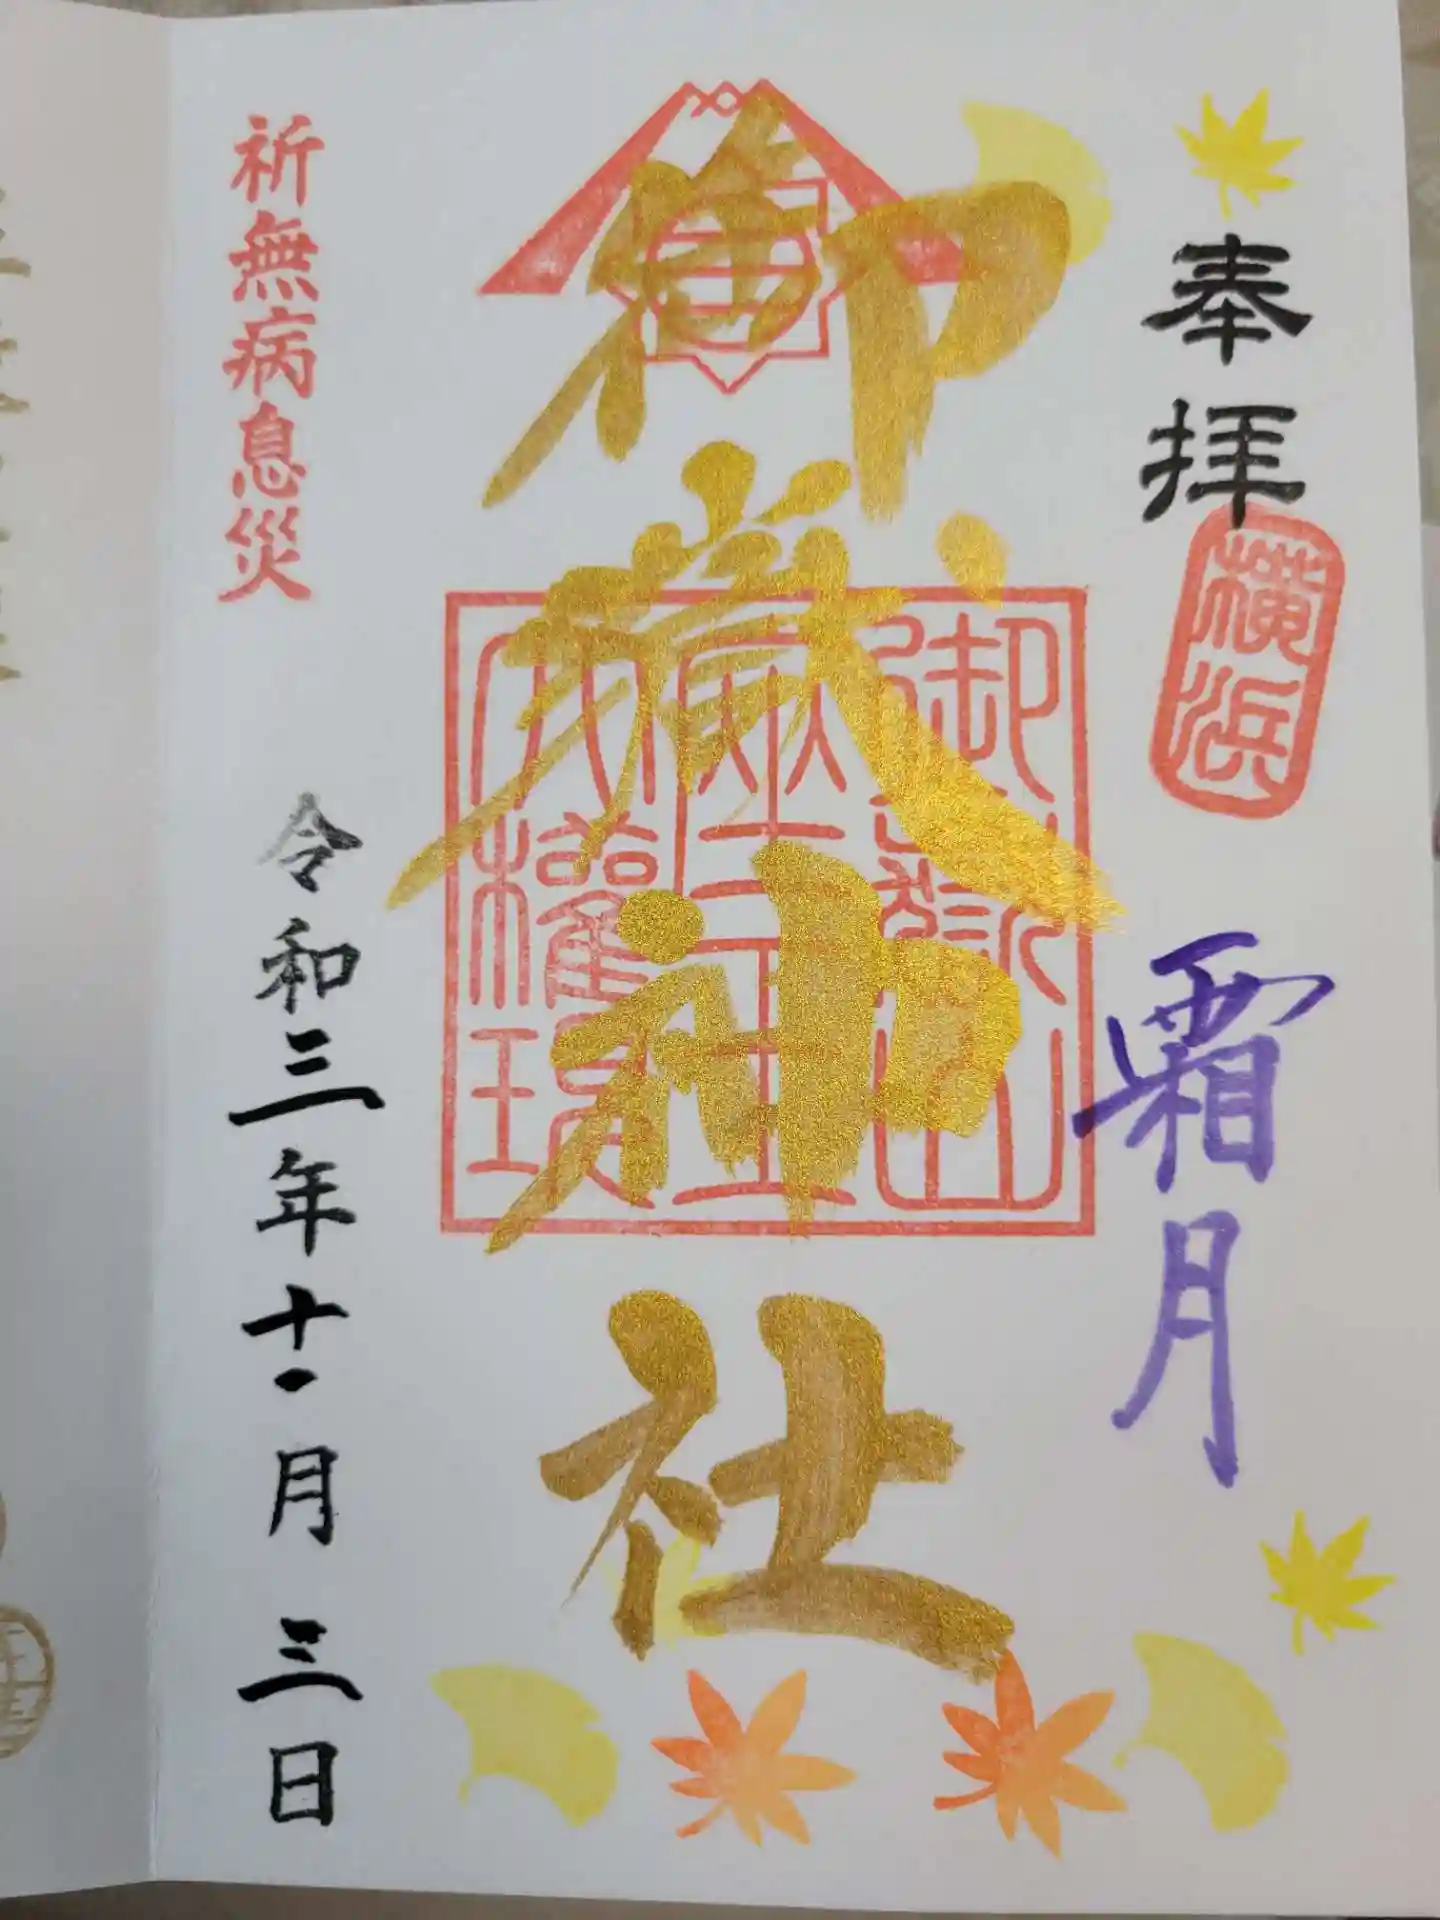 奉拝
横浜
霜月
御嶽神社
御嶽山
座王
大権現
祈無病息災
令和三年十一月三日